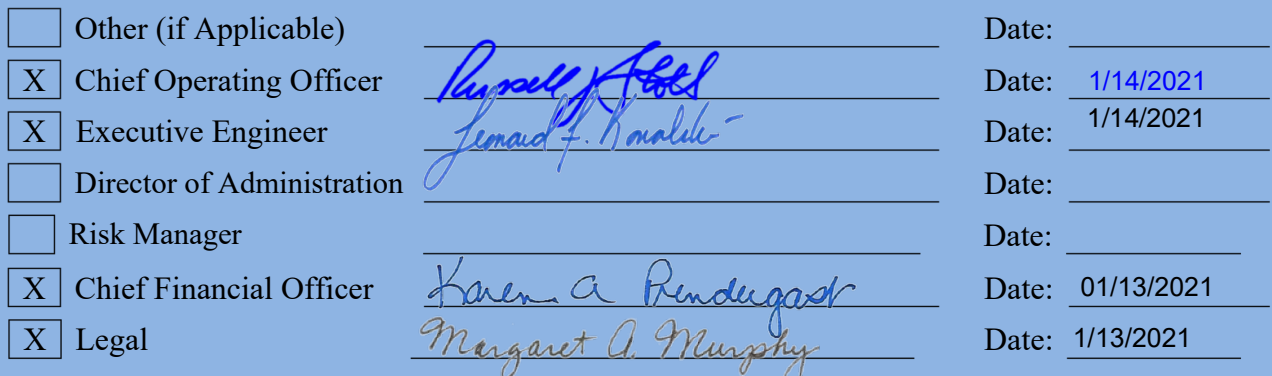 Other (if Applicable) Date:
X Chief Operating Officer Russell Date: 1/14/2021
X Executive Engineer Leonard F. Date: 1/14/2021
Director of Administration Date:
Risk Manager Date:
X Chief Financial Officer Karen A Prendergast Date: 01/13/2021
X Legal Margaret A. Murphy Date: 1/13/2021